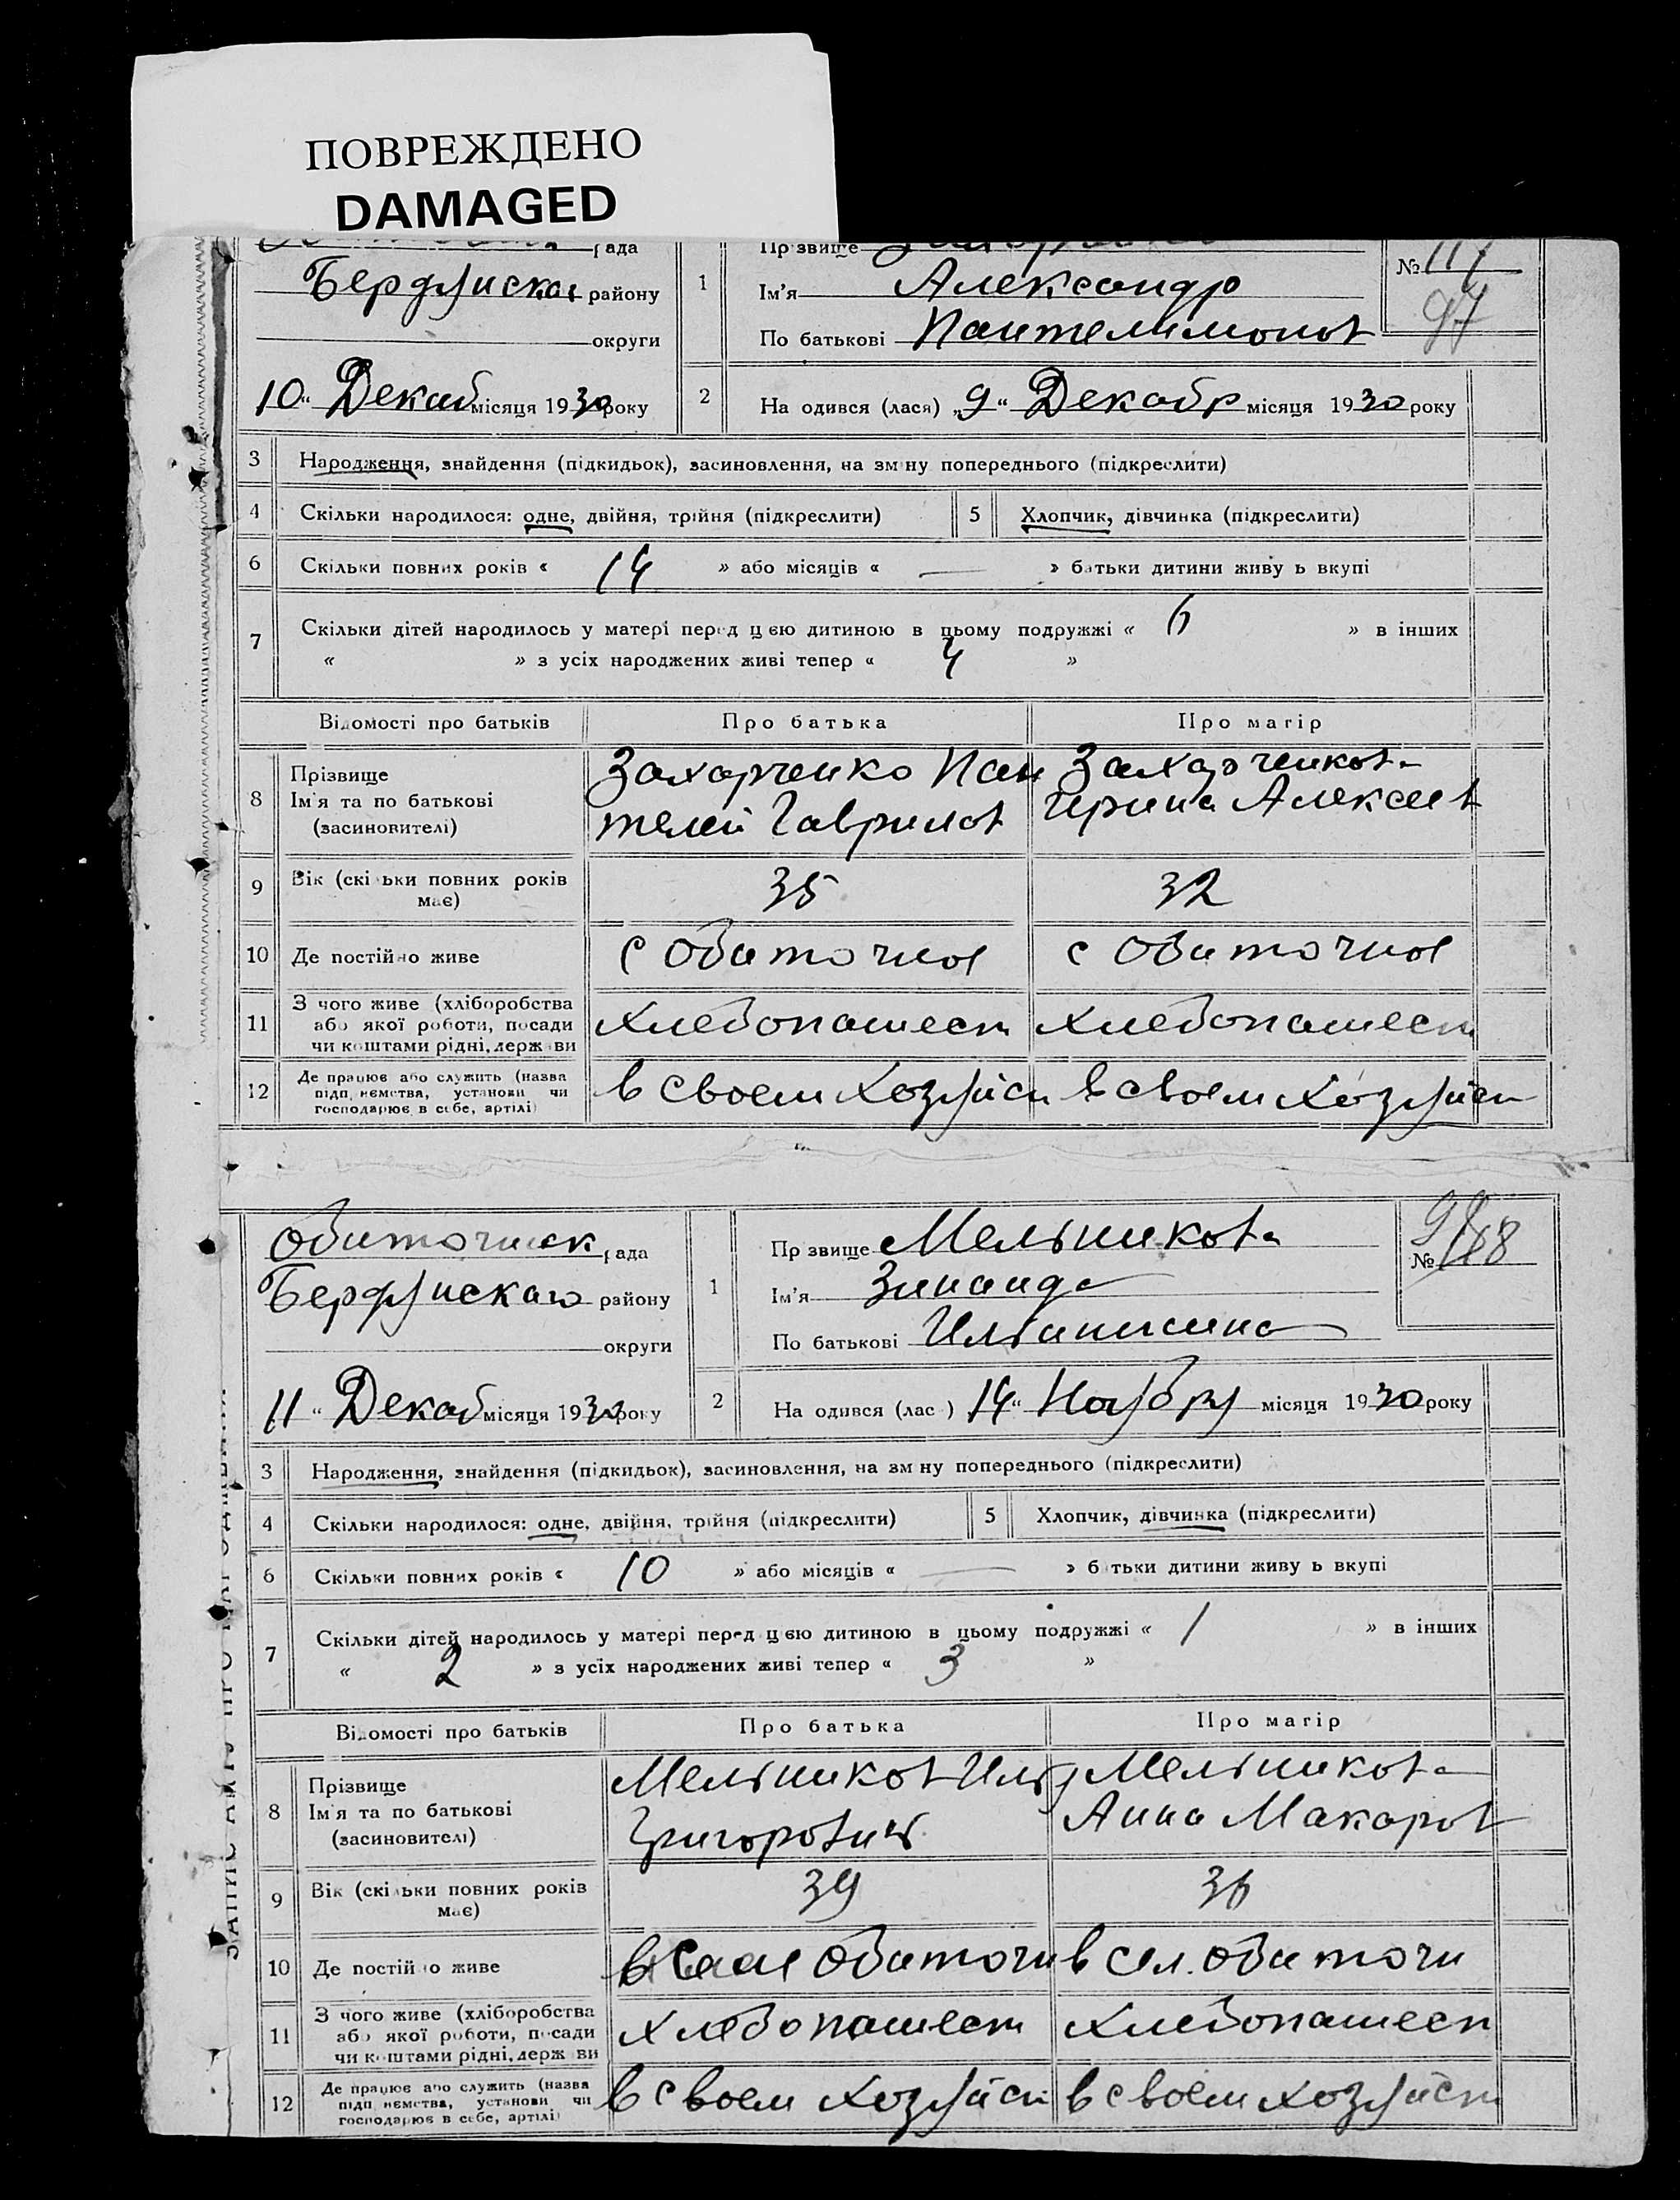 ПОВРЕЖДЕНО
DAMAGED
рада
Бердянског району
округи
10 " Декаб місяця 1930 року
1
Прізвище
Ім'я Александр
По батькові Пантелимонов
№ 117
97
2
На одився (лася) „9" Декабр місяця 1930 року
3 Народження, знайдення (підкидьок), засиновлення, на зм ну попереднього (підкреслити)
4 Скільки народилося: одне, двійня, трійня (підкреслити)
5 Хлопчик, дівчинка (підкреслити)
6 Скільки повних років « 14 » або місяців « — » батьки дитини живу ь вкупі
7 Скільки дітей народилось у матері перед цією дитиною в цьому подружжі « 6 » в інших
« » з усіх народжених живі тепер « 4 »
Відомості про батьків Про батька Про матір
8 Прізвище
Ім'я та по батькові
(засиновителі)
Захарченко Пан
телей Гаврилов
Захарченкова
Ирина Алексеев
9 Вік (скільки повних років
має)
35 32
10 Де постійно живе с Обиточное с Обиточное
11 З чого живе (хліборобства
або якої роботи, посади
чи коштами рідні, держави
Хлебопашест Хлебопашест
12 Де працює або служить (назва
підп иємства, установи чи
господарює в себе, артілі)
в своем хозяйси в своем хозяйси
Обиточнск рада
Бердянскаго району
округи
11 " Декаб місяця 1930 року
1
Пр звище Мельникова
Ім'я Зинаида
По батькові Ильинишна
98
№ 118
2
На одився (лас ) 14" Ноября місяця 1930 року
3 Народження, знайдення (підкидьок), засиновлення, на зм ну попереднього (підкреслити)
4 Скільки народилося: одне, двійня, трійня (підкреслити)
5 Хлопчик, дівчинка (підкреслити)
6 Скільки повних років « 10 » або місяців « — » б тьки дитини живу ь вкупі
7 Скільки дітей народилось у матері перед цією дитиною в цьому подружжі « 1 » в інших
« 2 » з усіх народжених живі тепер « 3 »
Відомості про батьків Про батька Про матір
8 Прізвище
Ім'я та по батькові
(засиновителі)
Мельников Илья
Григорович
Мельникова
Анна Макаров
9 Вік (скільки повних років
має)
39 36
10 Де постій о живе в селе Обиточн в сел. Обиточн
11 З чого живе (хліборобства
або якої роботи, посади
чи коштами рідні, держ ви
Хлебопашест Хлебопашест
12 Де працює або служить (назва
підп иємства, установи чи
господарює в себе, артілі)
в своем хозяйси в своем хозяйст